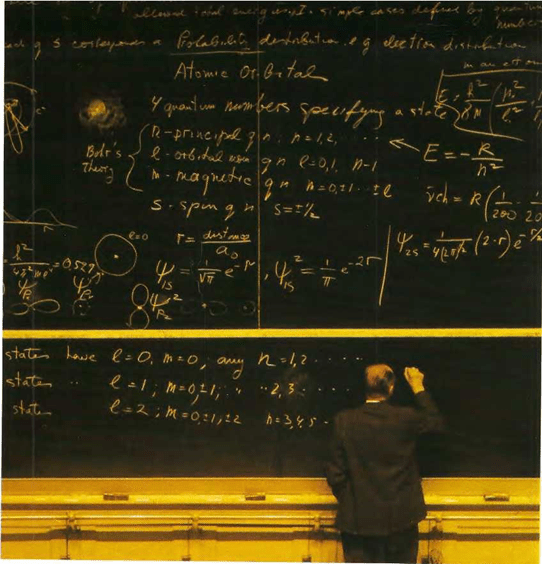 allowed total energies, I. simple cases define by quantum
numbers
q s corresponds a Probability distribution e g electron distribution
in an atom
Atomic Orbital
4 quantum numbers specifying a state
Bohr's
Theory
n - principal q n, n=1,2, ....
l - orbital q n l=0,1, n-1
m - magnetic q n m=0,±1 ... ±l
s - spin q n s=±1/2
E = -R/n²
ν̄ch = R(1/200 - 1/20
l=0
r = distance/a₀
= 0.529
ψ₁s = 1/√π e^-r , ψ₁s² = 1/π e^-2r
ψ₂s = 1/4(2π)^½ (2-r) e^-r/2
states have l=0, m=0, any n=1,2 .....
states " l=1; m=0,±1, " " 2,3 .....
state l=2; m=0,±1,±2 n=3,4,5 -